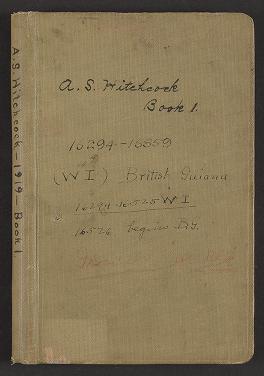 A.S. Hitchcock—1919—Book 1
A. S. Hitchcock
Book 1.
16294-16559
(W I) British Guiana
16294-16525 W I
16526 begins B.G.